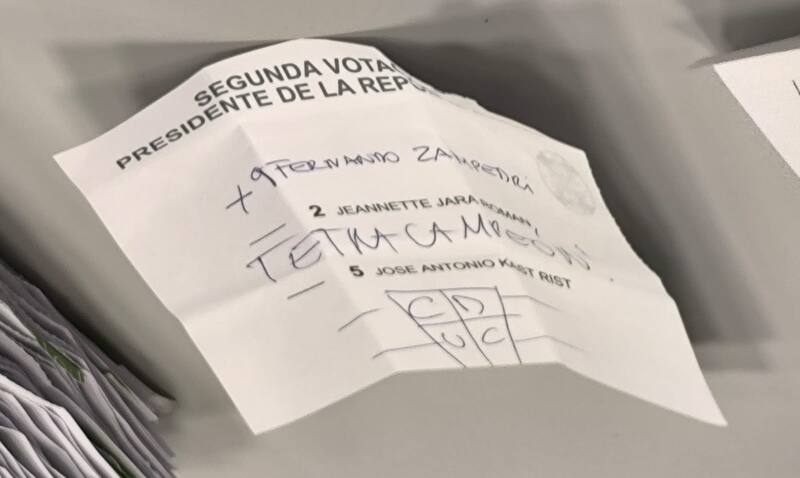 SEGUNDA VOTA
PRESIDENTE DE LA REPÚ
+ 9 FERNANDO ZAMPEDRI
2 JEANNETTE JARA ROMAN
TETRACAMPEON!
5 JOSE ANTONIO KAST RIST
C D
U C